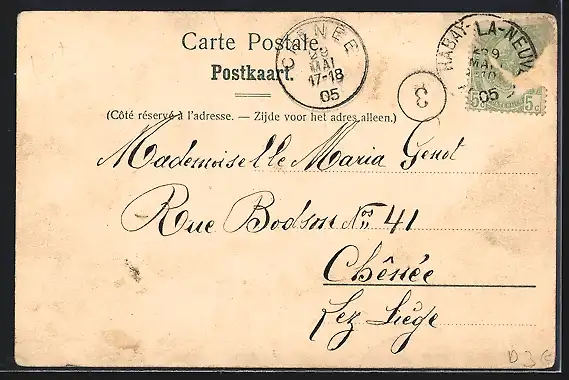 Carte Postale.
Postkaart.
(Côté réservé à l'adresse. — Zijde voor het adres alleen.)
CHÊNÉE
29
MAI
17-18
05
3
HABAY-LA-NEUVE
29
MAI
10
05
5c 5c
Mademoiselle Maria Genot
Rue Bodson Nos 41
Chênée
Lez Liége